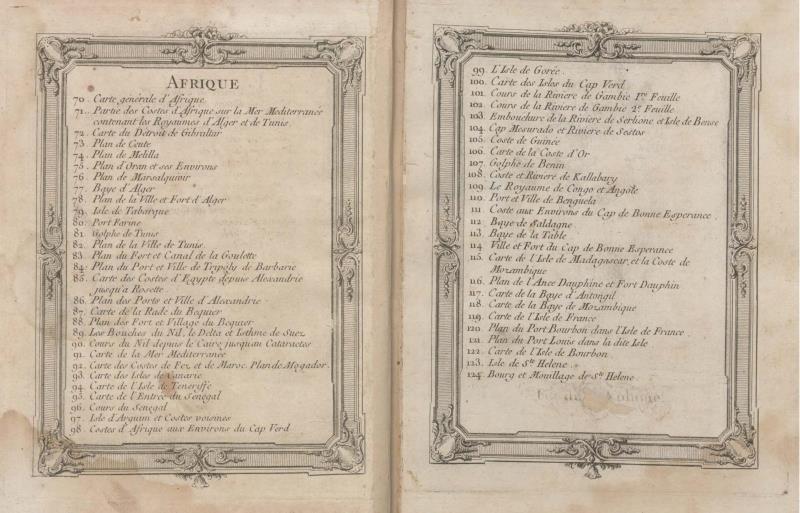 AFRIQUE
70. Carte générale d'Afrique.
71. Partie des Costes d'Afrique sur la Mer Mediterranée
contenant les Royaumes d'Alger et de Tunis.
72. Carte du Détroit de Gibraltar
73. Plan de Ceute
74. Plan de Melilla
75. Plan d'Oran et ses Environs
76. Plan de Marsalquivir
77. Baye d'Alger
78. Plan de la Ville et Fort d'Alger
79. Isle de Tabarque
80. Port Farine
81. Golphe de Tunis
82. Plan de la Ville de Tunis.
83. Plan du Fort et Canal de la Goulette
84. Plan du Port et Ville de Tripoly de Barbarie
85. Carte des Costes d'Egypte depuis Alexandrie
jusqu'a Rosette
86. Plan des Ports et Ville d'Alexandrie
87. Carte de la Rade du Bequier
88. Plan des Fort et Village du Bequier
89. Les Bouches du Nil, le Delta et Isthme de Suez
90. Cours du Nil depuis le Caire jusquau Cataractes
91. Carte de la Mer Mediterranée
92. Carte des Costes de Fez et de Maroc. Plan de Mogador.
93. Carte des Isles de Canarie
94. Carte de l'Isle de Teneriffe
95. Carte de l'Entrée du Senegal
96. Cours du Senegal
97. Isle d'Arguim et Costes voisines
98. Costes d'Afrique aux Environs du Cap Verd
99. L'Isle de Gorée.
100. Carte des Isles du Cap Verd
101. Cours de la Riviere de Gambie 1re. Feuille
102. Cours de la Riviere de Gambie 2e. Feuille
103. Embouchure de la Riviere de Serlione et Isle de Bense
104. Cap Mesurado et Riviere de Sestos
105. Coste de Guinée
106. Carte de la Coste d'Or
107. Golphe de Benin
108. Coste et Riviere de Kallabary
109. Le Royaume de Congo et Angole
110. Port et Ville de Benguela
111. Coste aux Environs du Cap de Bonne Esperance.
112. Baye de Saldagne
113. Baye de la Table
114. Ville et Fort du Cap de Bonne Esperance
115. Carte de l'Isle de Madagascar, et la Coste de
Mozambique
116. Plan de l'Ance Dauphine et Fort Dauphin
117. Carte de la Baye d'Antongil
118. Carte de la Baye de Mozambique
119. Carte de l'Isle de France
120. Plan du Port Bourbon dans l'Isle de France
121. Plan du Port Louis dans la dite Isle
122. Carte de l'Isle de Bourbon
123. Isle de Ste Helene
124. Bourg et Mouillage de Ste Helene